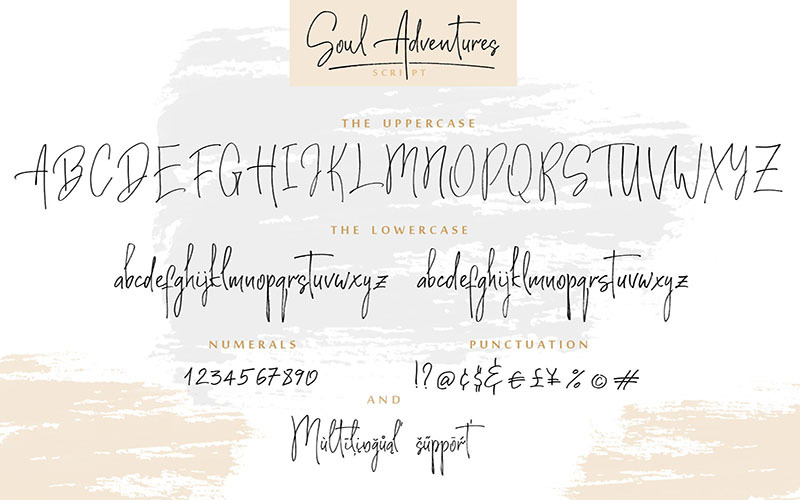 Soul Adventures
SCRIPT
THE UPPERCASE
ABCDEFGHIJKLMNOPQRSTUVWXYZ
THE LOWERCASE
abcdefghijklmnopqrstuvwxyz abcdefghijklmnopqrstuvwxyz
NUMERALS PUNCTUATION
1234567890 !?@¢$&€£¥%©#
AND
Mùltīļįņğűāl šűppőŕt